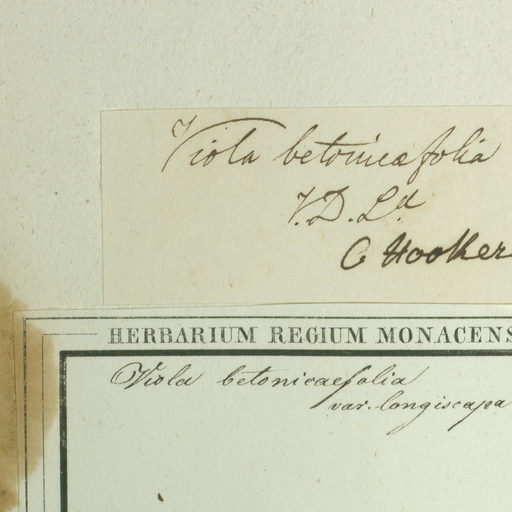 Viola betonicæfolia
V.D.Ld.
C Hooker
HERBARIUM REGIUM MONACENS
Viola betonicaefolia
var. longiscapa